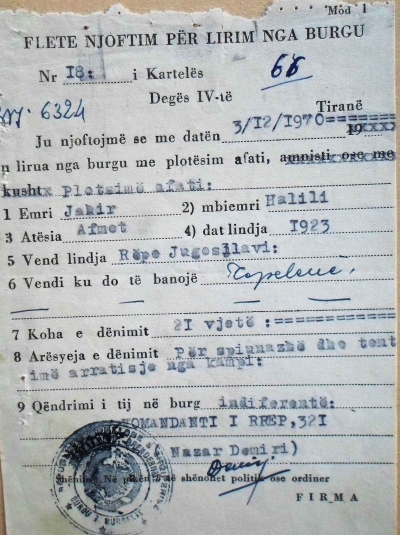 Mod 1
FLETE NJOFTIM PËR LIRIM NGA BURGU
Nr 18: i Kartelës 66
Nr. 6324
Degës IV-të Tiranë
Ju njoftojmë se me datën 3/12/1970 19
n lirua nga burgu me plotësim afati, amnisti ose me
kusht plotsimë afati:
1 Emri Jahir 2) mbiemri Halili
3 Atësia Afmet 4) dat lindja 1923
5 Vend lindja Rëpe Jugosllavi:
6 Vendi ku do të banojë Tepelenë.
7 Koha e dënimit 21 vjetë :=========
8 Arësyeja e dënimit Për spiunazhë dhe tent
imë arratisje nga kampi:
9 Qëndrimi i tij në burg indiferentë:
KOMANDANTI I RREP, 321
Nazar Demiri)
Shënim Në të shënohet politik ose ordiner
FIRMA